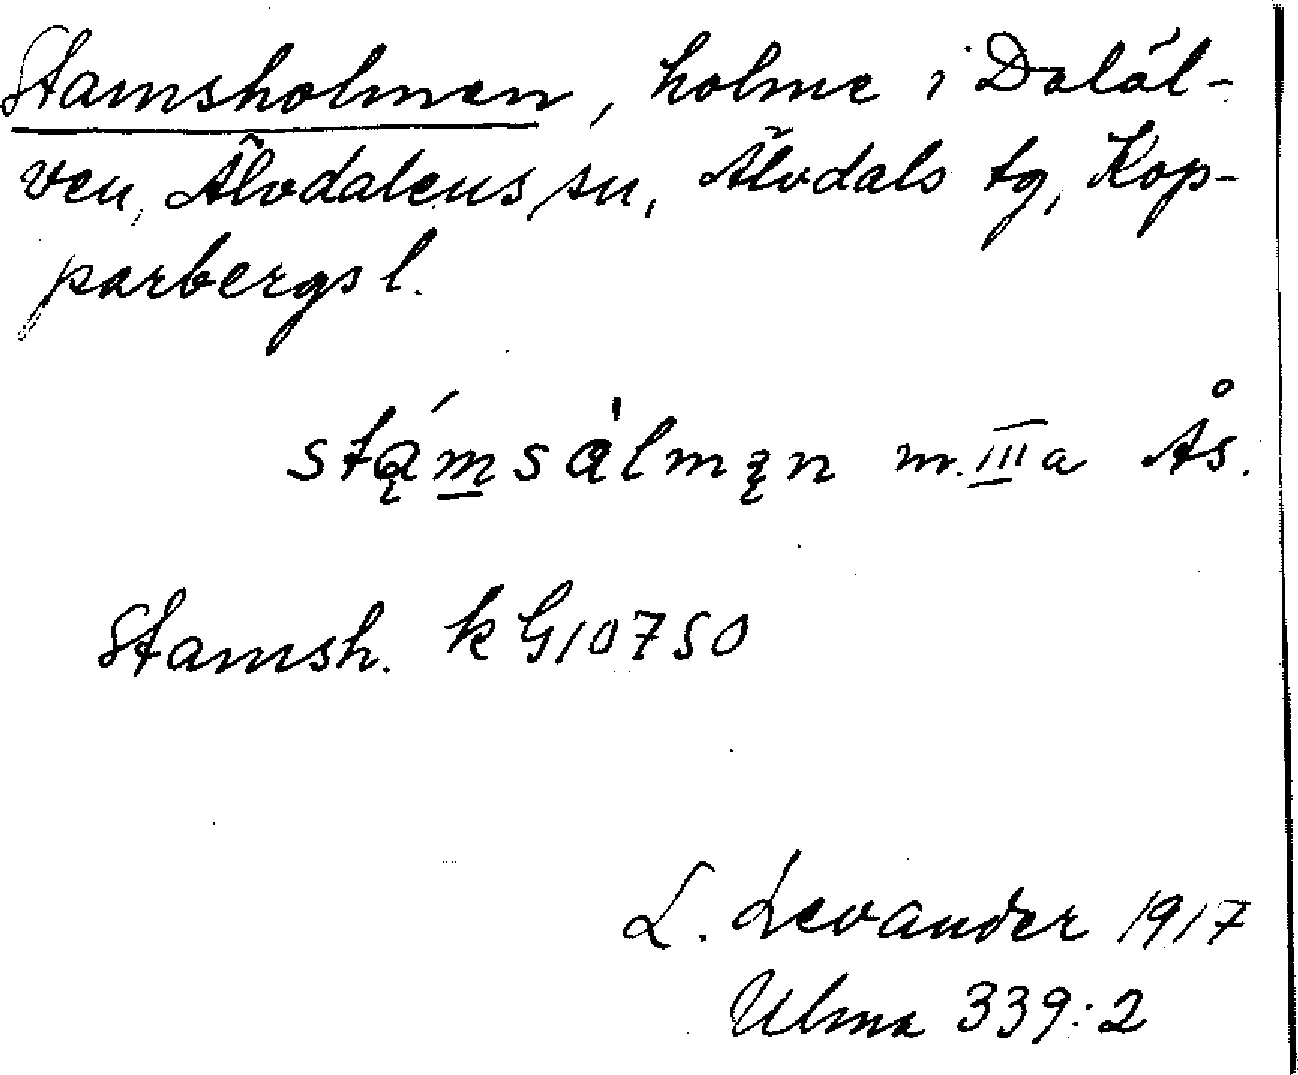 Stamsholmen, holme i Daläl-
ven, Älvdalens sn, Älvdals tg, Kop-
parbergs l.
stą́m̲sàlmąn m. III a Ås.
Stamsh. k G10750
L. Levander 1917
Ulma 339:2